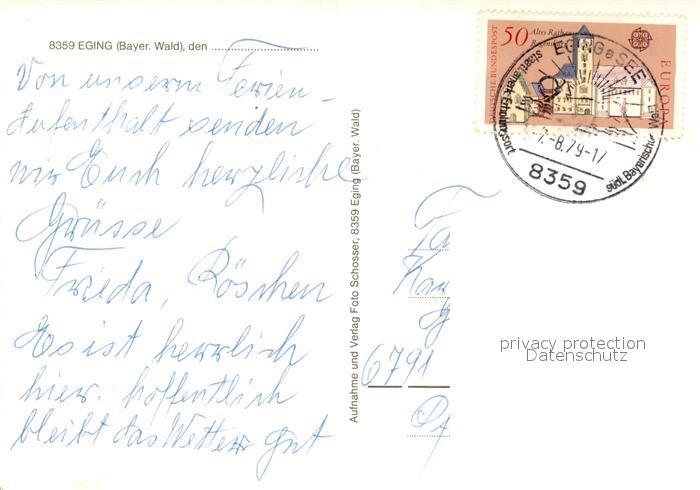 8359 EGING (Bayer. Wald), den
Von unserm Ferien-
Aufenthalt senden
wir Euch herzliche
Grüsse
Frieda, Röschen
Es ist herrlich
hier. hoffentlich
bleibt das Wetter gut
Aufnahme und Verlag Foto Schosser, 8359 Eging (Bayer. Wald)
DEUTSCHE BUNDESPOST
50
Altes Rathaus
EUROPA
EGING a SEE
staatl. anerk. Erholungsort
-8.79-17
südl. Bayerischer Wald
8359
6791
privacy protection
Datenschutz